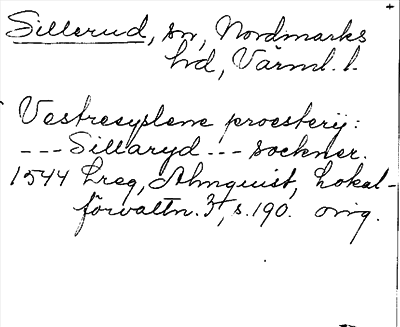 Sillerud, sn, Nordmarks
hd, Värml. l.
Vestresyslene proesterij:
--- Sillaryd --- sockner.
1544 Lreg, Almquist, Lokal-
förvaltn. 3, s. 190. orig.